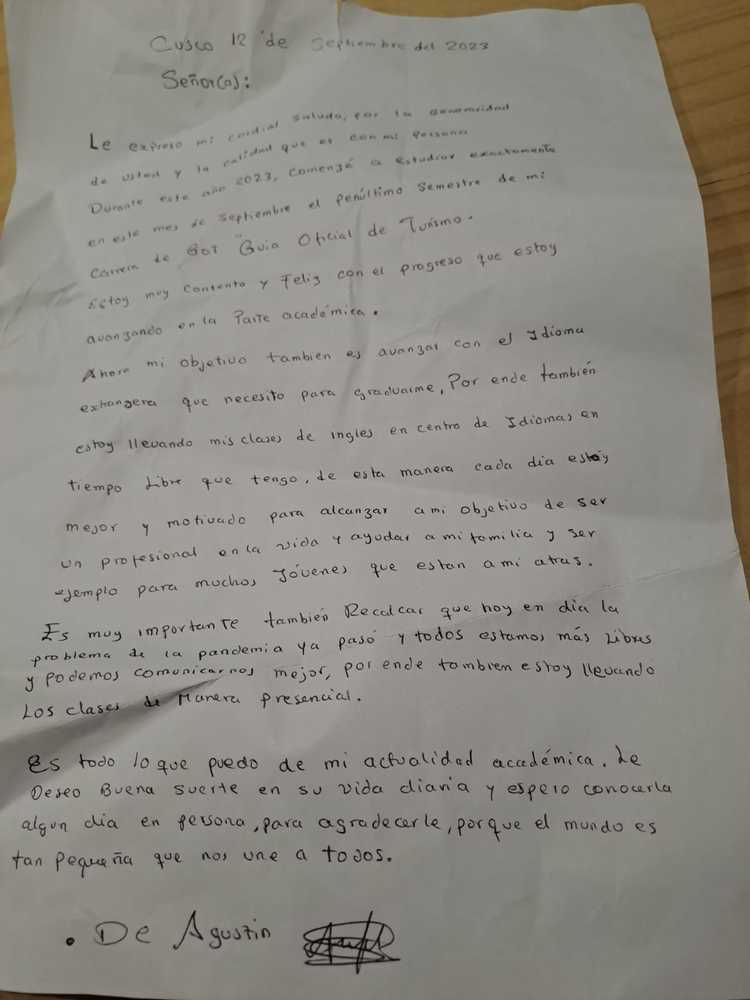 Cusco 12 de Septiembre del 2023
Señor(a):
Le expreso mi cordial saludo, por la generosidad
de usted y la calidad que es con mi persona
Durante este año 2023, comenzé a estudiar exactamente
en este mes de septiembre el penúltimo semestre de mi
carrera de GOT "Guia Oficial de Turismo.
Estoy muy contento y Feliz con el progreso que estoy
avanzando en la Parte académica.
Ahora mi objetivo tambien es avanzar con el Idioma
extrangera que necesito para graduarme, Por ende también
estoy llevando mis clases de ingles en centro de Idiomas en
tiempo Libre que tengo, de esta manera cada dia estoy
mejor y motivado para alcanzar a mi objetivo de ser
un profesional en la vida y ayudar a mi familia y ser
ejemplo para muchos Jóvenes que estan a mi atras.
Es muy importante también Recalcar que hoy en día la
problema de la pandemia ya pasó y todos estamos más Libres
y podemos comunicarnos mejor, por ende tambien estoy llevando
Los clases de Manera presencial.
Es todo lo que puedo de mi actualidad académica. Le
Deseo Buena suerte en su vida diaria y espero conocerla
algun dia en persona, para agradecerle, porque el mundo es
tan pequeña que nos une a todos.
• De Agustin